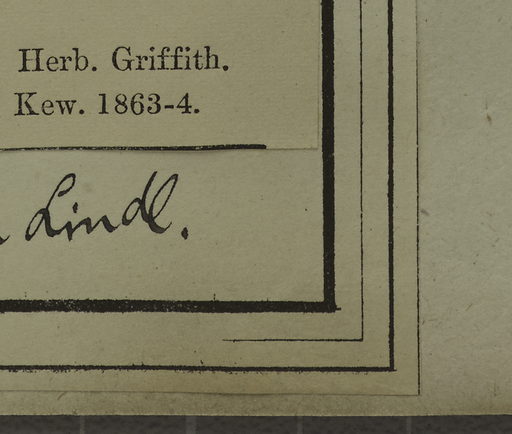 Herb. Griffith.
Kew. 1863-4.
Lindl.